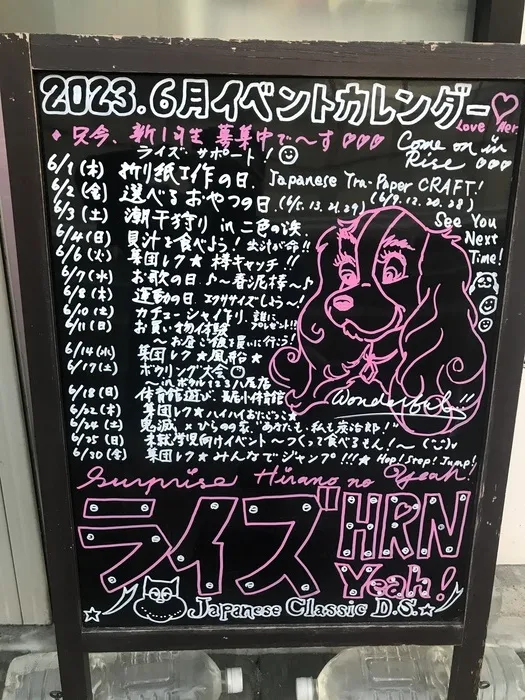 2023.6月イベントカレンダー♡
Love Ver.
◆只今、新1年生 募集中で〜す♡♡♡
ライズ・サポート!
Come on in
Rise ♡♡♡
6/1(木) 折り紙工作の日、Japanese Tra-Paper CRAFT!
6/2(金) 選べるおやつの日、(6/5.13.21.29)(6/9.12.20.28)
6/3(土) 潮干狩り in 二色の浜
See You
Next
Time!
6/4(日) 貝汁を食べよう!出汁が命!!
6/6(火) 集団レク★棒キャッチ!!
6/7(水) お歌の日♪〜春泥棒〜♪
6/8(木) 運動の日 エクササイズしよう〜!
6/10(土) カチューシャ作り、誰にプレゼント!!
6/11(日) お買い物体験
〜お昼ご飯を買いに行こう!
6/14(水) 集団レク★風船★
6/17(土) ボウリング大会
〜in ボウル123八尾店
6/18(日) 体育館遊び、長尾小体育館
6/22(木) 集団レク★ハイハイおにごっこ★
6/24(土) 鬼滅×ひらのの家、あなたも、私も炭治郎!
6/25(日) 未就学児向けイベント〜つくって食べるもん!〜
6/30(金) 集団レク★みんなでジャンプ!!!★Hop!Step!Jump!
Wonderful!!
Surprise Hirano no Yeah!
ライズ HRN
Yeah!
Japanese Classic D.S.★